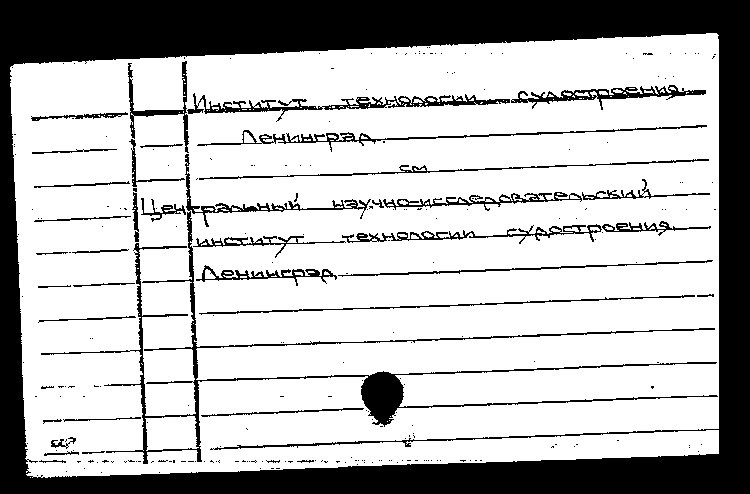 Институт технологии судостроения.
Ленинград.
см
Центральный научно-исследовательский
институт технологии судостроения.
Ленинград